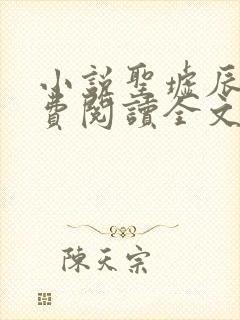 小說聖墟辰
費閱讀全文
陳天宗